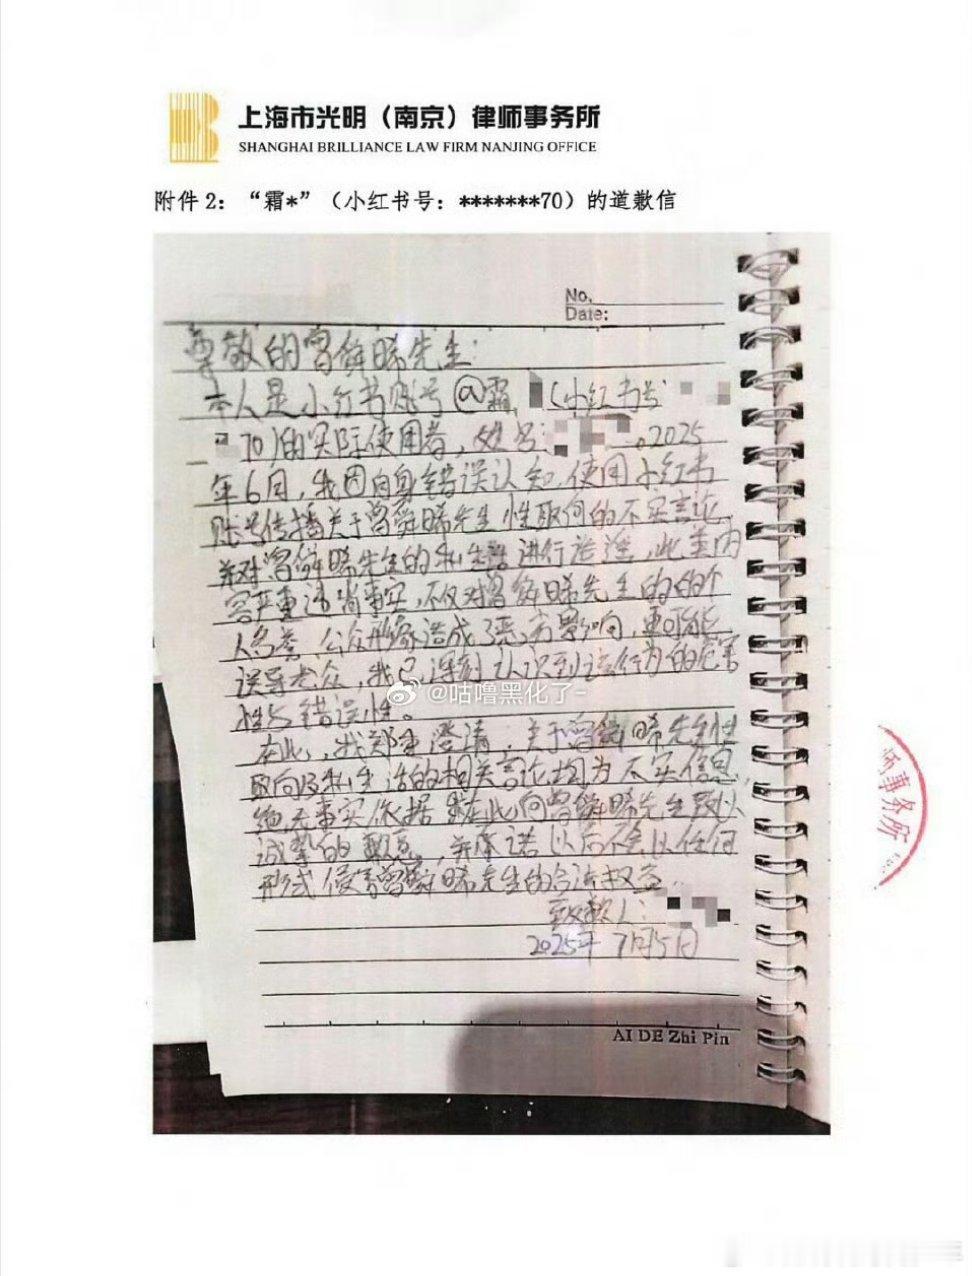 上海市光明（南京）律师事务所
SHANGHAI BRILLIANCE LAW FIRM NANJING OFFICE
附件 2：“霜*”（小红书号：*******70）的道歉信
No.
Date:
尊敬的曾舜晞先生：
本人是小红书账号@霜（小红书号
70)的实际使用者，姓名：。2025
年6月，我因自身错误认知，使用小红书
账号传播关于曾舜晞先生性取向的不实言论，
并对曾舜晞先生的私生活进行造谣，此类内
容严重违背事实，不仅对曾舜晞先生的的个
人名誉、公众形象造成了恶劣影响，更可能
误导公众，我已深刻认识到该行为的危害
性与错误性。
在此，我郑重澄清：关于曾舜晞先生性
取向及私生活的相关言论均为不实信息，
绝无事实依据 我在此向曾舜晞先生致以
诚挚的歉意，并承诺以后不会以任何
形式侵害曾舜晞先生的合法权益。
致歉人：
2025年7月5日
AI DE Zhi Pin
@咕噜黑化了-
师事务所